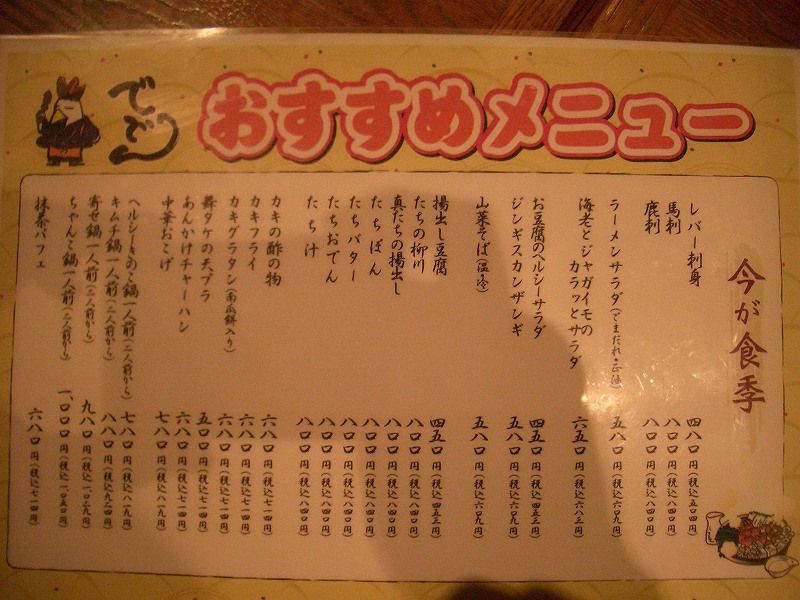 でどん
おすすめメニュー
今が食季
レバー刺身 四八〇円(税込五〇四円)
馬刺 八〇〇円(税込八四〇円)
鹿刺 八〇〇円(税込八四〇円)
ラーメンサラダ(ごまだれ・正油) 五八〇円(税込六〇九円)
海老とジャガイモの
カラッとサラダ 六五〇円(税込六八三円)
お豆腐のヘルシーサラダ 四五〇円(税込四五三円)
ジンギスカンザンギ 五八〇円(税込六〇九円)
山菜そば(温・冷) 五八〇円(税込六〇九円)
揚出し豆腐 四五〇円(税込四五三円)
たちの柳川 八〇〇円(税込八四〇円)
真たちの揚出し 八〇〇円(税込八四〇円)
たちぽん 八〇〇円(税込八四〇円)
たちバター 八〇〇円(税込八四〇円)
たちおでん 八〇〇円(税込八四〇円)
たち汁 八〇〇円(税込八四〇円)
カキの酢の物 六八〇円(税込七一四円)
カキフライ 六八〇円(税込七一四円)
カキグラタン(南瓜餅入り) 六八〇円(税込七一四円)
舞タケの天プラ 五〇〇円(税込五二五円)
あんかけチャーハン 六八〇円(税込七一四円)
中華おこげ 七八〇円(税込八一九円)
ヘルシーきのこ鍋一人前(二人前から) 七八〇円(税込八一九円)
キムチ鍋一人前(二人前から) 八八〇円(税込九二四円)
寄せ鍋一人前(二人前から) 九八〇円(税込一、〇二九円)
ちゃんこ鍋一人前(二人前から) 一、〇〇〇円(税込一、〇五〇円)
抹茶パフェ 六八〇円(税込七一四円)